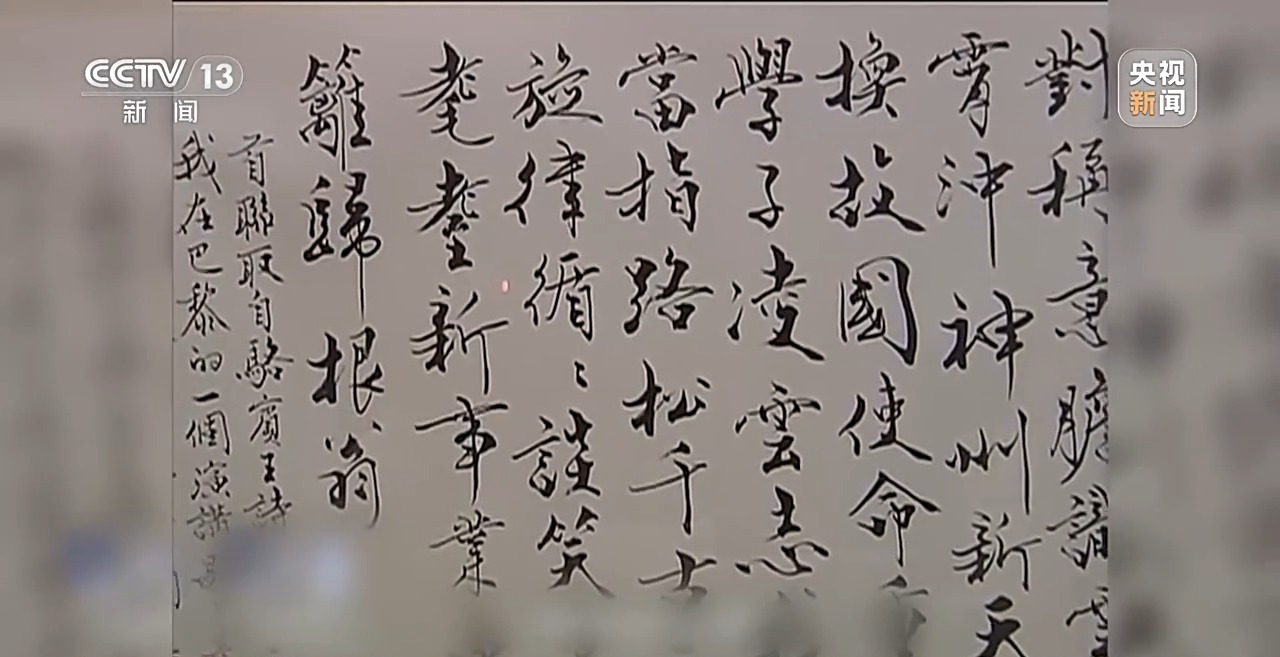 CCTV 13
新闻
央视
新闻
對稱意膽識雲
霄沖神州新天
換故國使命
學子凌雲志
當指路松千古
旋律循〻談笑
耄耋新事業
籬歸根翁
首聯取自駱賓王詩
我在巴黎的一個演講